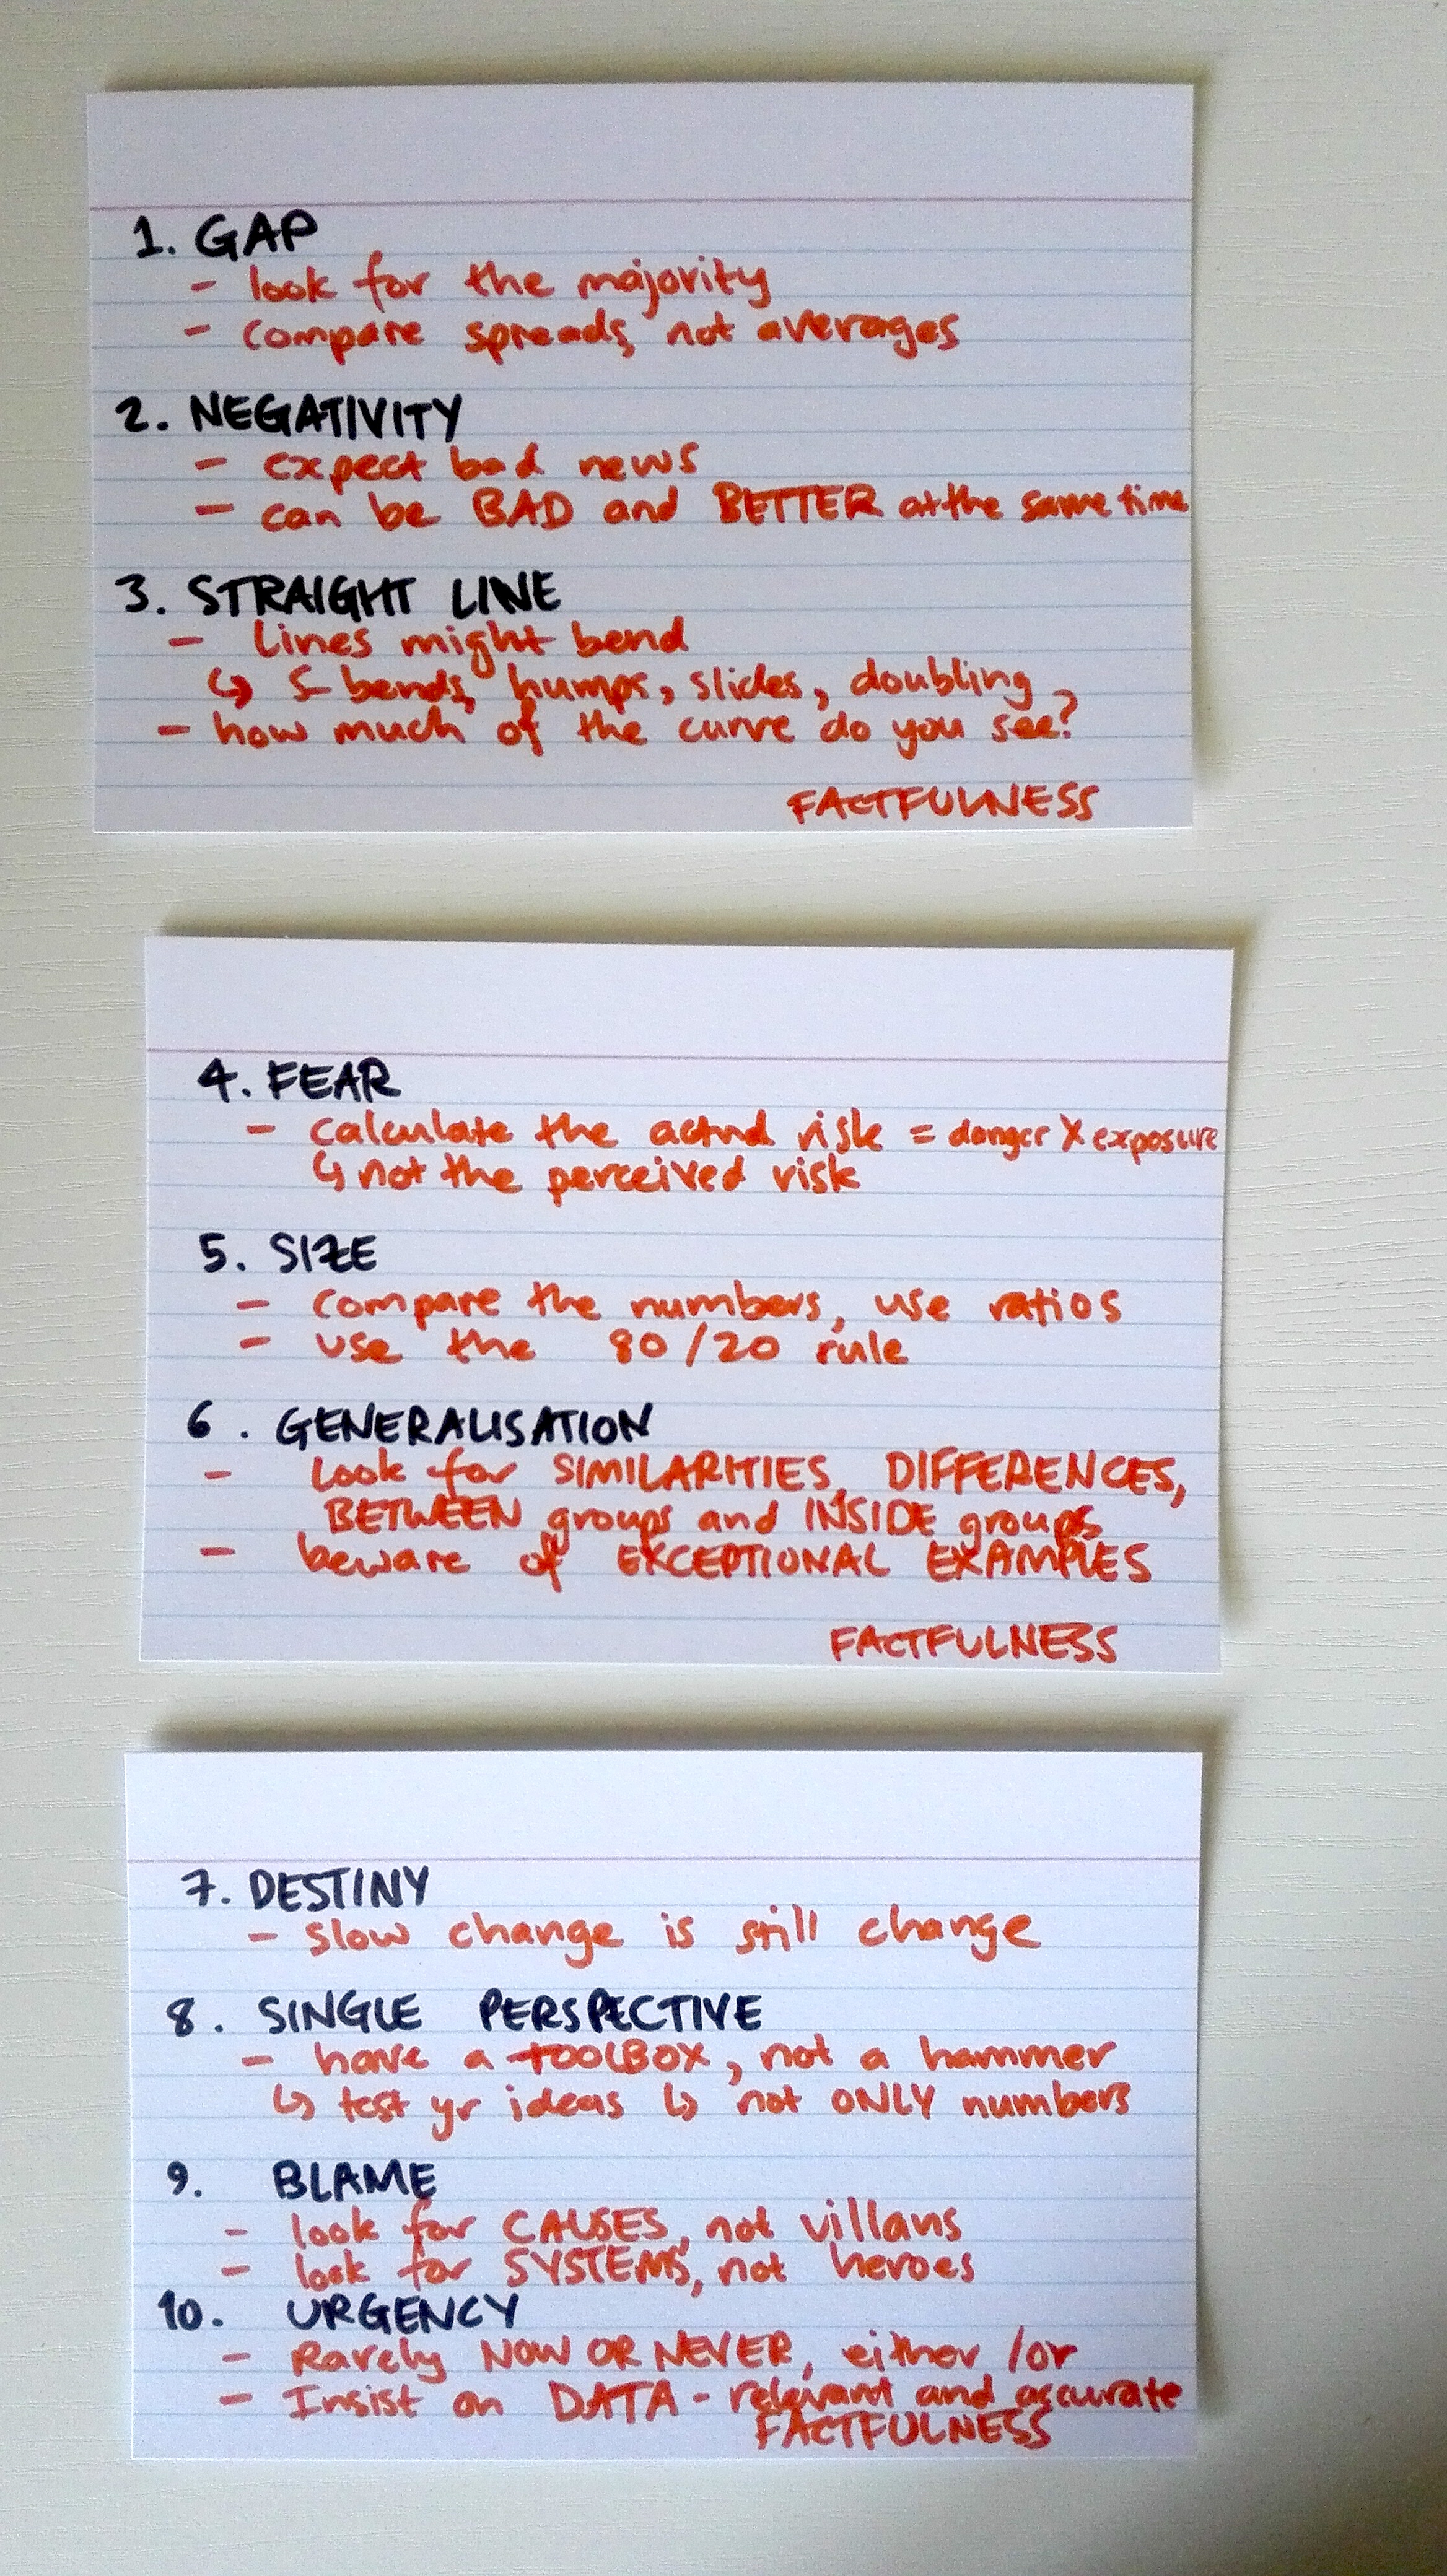 1. GAP
- look for the majority
- compare spreads, not averages
2. NEGATIVITY
- expect bad news
- can be BAD and BETTER at the same time
3. STRAIGHT LINE
- Lines might bend
↳ S-bends, humps, slides, doubling
- how much of the curve do you see?
FACTFULNESS
4. FEAR
- calculate the actual risk = danger X exposure
↳ not the perceived risk
5. SIZE
- compare the numbers, use ratios
- use the 80/20 rule
6. GENERALISATION
- Look for SIMILARITIES, DIFFERENCES,
BETWEEN groups and INSIDE groups
- beware of EXCEPTIONAL EXAMPLES
FACTFULNESS
7. DESTINY
- slow change is still change
8. SINGLE PERSPECTIVE
- have a TOOLBOX, not a hammer
↳ test yr ideas ↳ not ONLY numbers
9. BLAME
- look for CAUSES, not villans
- look for SYSTEMS, not heroes
10. URGENCY
- Rarely NOW OR NEVER, either/or
- Insist on DATA - relevant and accurate
FACTFULNESS